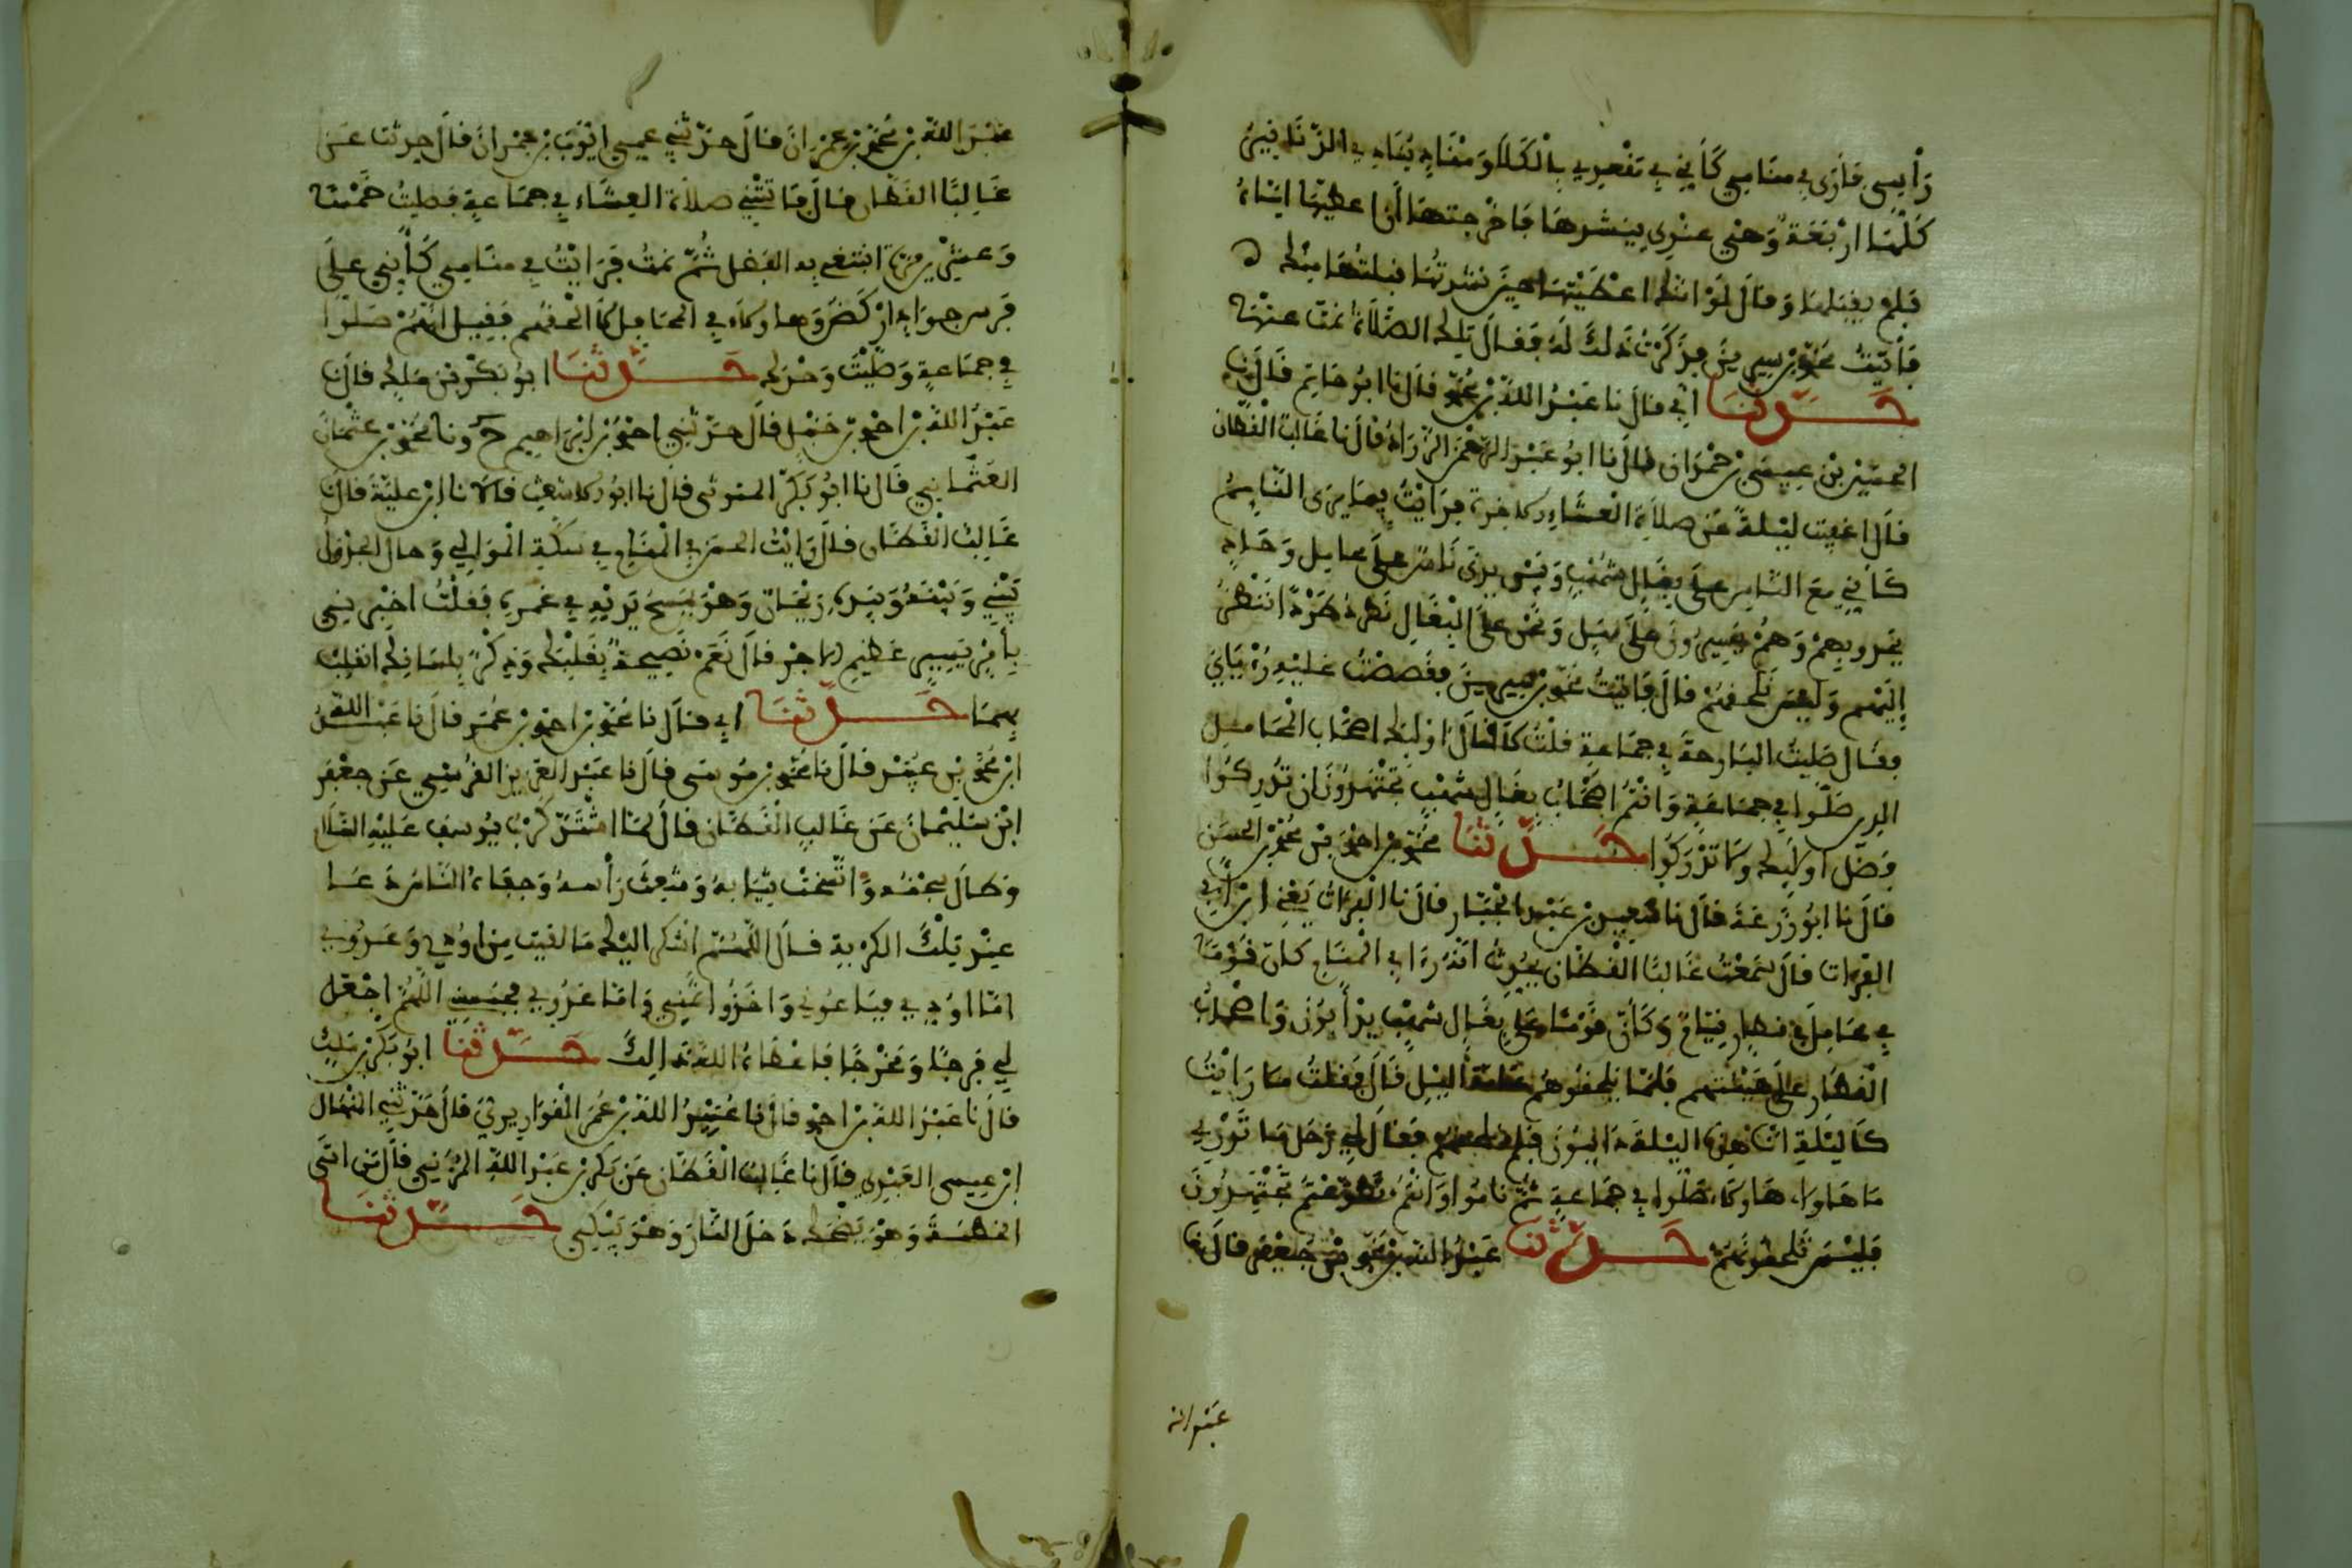 رأيسي فأرى في منامي كأني في مفصوبي بالكلأ ومناد ينادي الزناد فيه
كلها اربعة وهي عندي ينشرها فاخرجتها أنا اعطيها اياه
فلم يقبلها وقال لو انك اعطيتها حين نشرتها قبلتها منك
فأتيت محمد بن سيرين فذكرت ذلك له فقال تلك الصلاة نمت عنها
حدثنا أبي قال نا عبد الله بن محمد قال نا ابو حاتم قال نا
الحسين بن عيسى بن حمران قال نا ابو عبد الرحمن الزراد قال نا غالب القطان
قال اغفيت ليلة عن صلاة العشاء الاخرة فرأيت فيما يرى النائم
كأني مع الناس على بغال شهب وبين يدي ناس على محامل وحاد
يحدو بهم وهم يسيرون على سيل ونحن على البغال نطرد طردا ننظر
إليهم وليس نلحقهم قال فأتيت محمد بن سيرين فقصصت عليه رؤياي
فقال صليت البارحة في جماعة قلت لا قال اولئك اصحاب المحامل
الذين صلوا في جماعة وانتم اصحاب بغال شهب تجتهدون ان تدركوا
فضل اولئك ولا تدركوا حدثنا محمد بن احمد بن محمد بن الحسن
قال نا ابو زرعة قال نا سعيد بن عبد الجبار قال نا الفرات يعني ابن أبي
الفرات قال سمعت غالبا القطان يحدث انه رأى في المنام كأن قوما
في محامل في قطار قيام وكأن قوما على بغال شهب يدأبون واصحاب
القطار على هينتهم فلما يلحقوهم الليل قال فقلت ما رأيت
كالليلة ان هذه الليلة دايبون فلم فقال لي رجل ما تدري
ما هاولا هاولاء صلوا في جماعة ثم ناموا وانتم تجتهدون
فليس تلحقونهم حدثنا عبد الله بن محمد بن جعفر قال نا
عبد الله
عبد الله بن محمد بن عمران قال حدثني عيسى ايوب بن عمران قال حدثنا عن
غالبا القطان قال فاتتني صلاة العشاء في جماعة فصليت خمسة
وعشرين مرة ابتغي به الفضل ثم نمت فرأيت في منامي كأني على
فرس جواد اركض وهاولاء في المحامل لا الحقهم فقيل انهم صلوا
في جماعة وصليت وحدك حدثنا ابو بكر بن مالك قال نا
عبد الله بن احمد بن حنبل قال حدثني احمد بن ابراهيم ح ونا محمد بن عثمان
العثماني قال نا ابو بكر قال نا ابو الاشعث قالا نا ابن علية قال نا
غالب القطان قال رأيت الحسن في المنام في سكة الموالي وحال الجدول
بيني وبينه وبيده ريحان وهو يمسح يديه في غمره فقلت اخبرني
بأمر يسير عظيم الاجر قال نعم نصيحة بقلبك وذكر بلسانك انقلب
بهما حدثنا أبي قال نا محمد بن احمد بن عمر قال نا عبد الله
ابن محمد بن عبيد قال نا محمد بن موسى قال نا عبد العزيز القرشي عن جعفر
ابن سليمان عن غالب القطان قال لما اشتد كرب يوسف عليه السلام
وطال سجنه واتسخت ثيابه وشعث رأسه وجفاه الناس دعا
عند تلك الكربة قال اللهم اشكي اليك ما لقيت من اودي وعدوي
اما اودي فباعوني واخذوا ثمني واما عدوي فحبسني اللهم اجعل
لي فرجا ومخرجا فاعطاه الله ذالك حدثنا ابو بكر بن مالك
قال نا عبد الله بن احمد قال نا عبيد الله بن عمر القواريري قال حدثني النهال
ابن عيسى العبدي قال نا غالب القطان عن بكر بن عبد الله المزني قال من اتى
الخطيئة وهو يضحك دخل النار وهو يبكي حدثنا